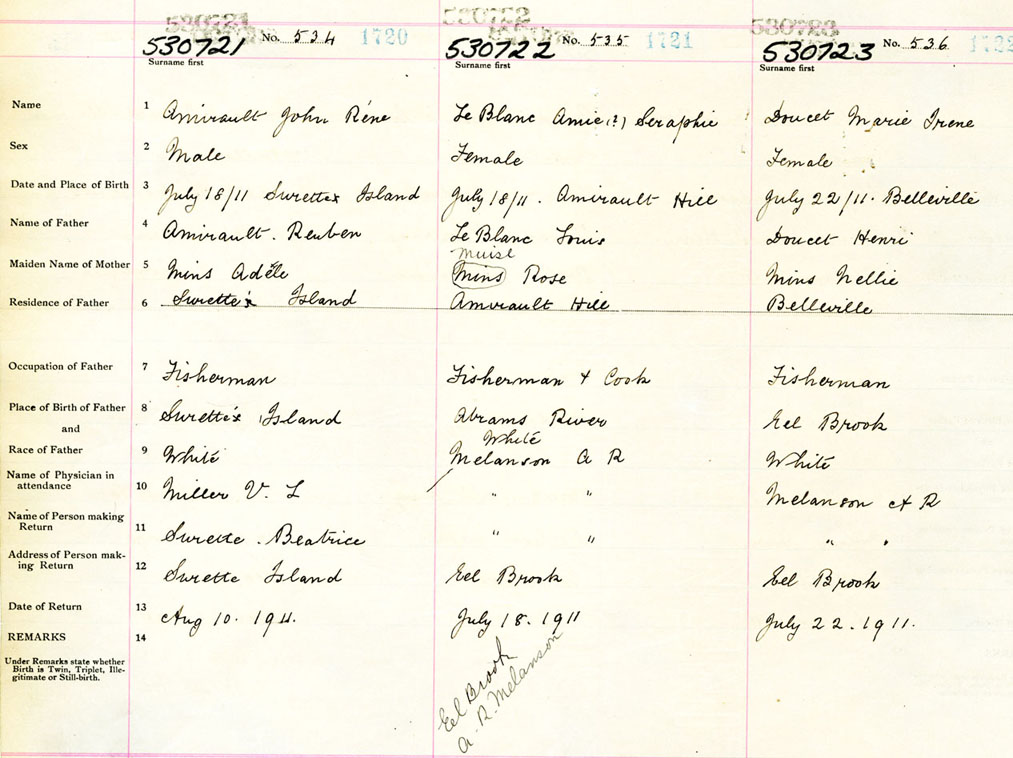 530721 No. 534 1720
Surname first
530722 No. 535 1721
Surname first
530723 No. 536
Surname first
Name 1 Amirault John Réne
Le Blanc Amie(?) Seraphie
Doucet Marie Irene
Sex 2 Male
Female
Female
Date and Place of Birth 3 July 18/11 Surettes Island
July 18/11. Amirault Hill
July 22/11. Belleville
Name of Father 4 Amirault. Reuben
Le Blanc Louis
Doucet Henri
Maiden Name of Mother 5 Mins Adéle
Muise
Mins Rose
Mins Nellie
Residence of Father 6 Surette's Island
Amirault Hill
Belleville
Occupation of Father 7 Fisherman
Fisherman & Cook
Fisherman
Place of Birth of Father 8 Surette's Island
Abrams River
Eel Brook
and
Race of Father 9 White
White
White
Name of Physician in
attendance 10 Miller V. L
Melanson A R
" "
Melanson A R
Name of Person making
Return 11 Surette. Beatrice
" "
" "
Address of Person mak-
ing Return 12 Surette Island
Eel Brook
Eel Brook
Date of Return 13 Aug 10. 1911.
July 18. 1911
July 22. 1911.
REMARKS 14
Under Remarks state whether
Birth is Twin, Triplet, Ille-
gitimate or Still-birth.
Eel Brook
A. R. Melanson